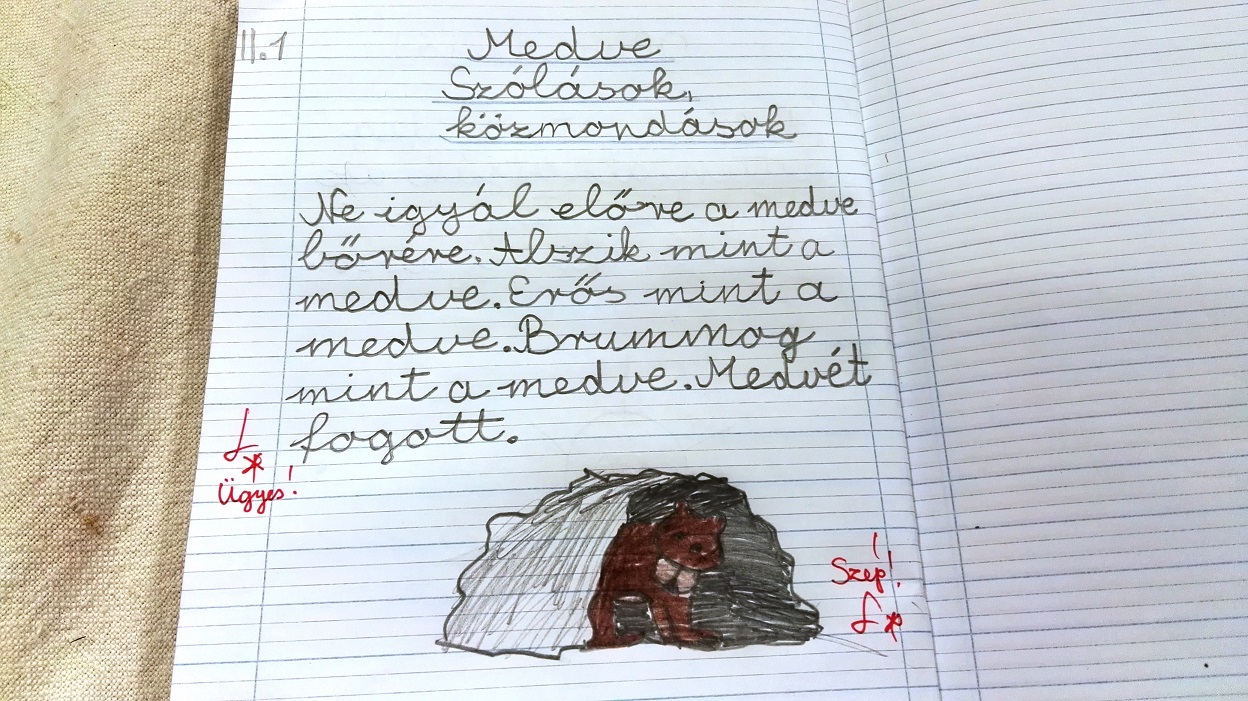 II.1
Medve
Szólások,
közmondások
Ne igyál előre a medve
bőrére. Alszik mint a
medve. Erős mint a
medve. Brummog
mint a medve. Medvét
fogott.
Ügyes!
Szép!